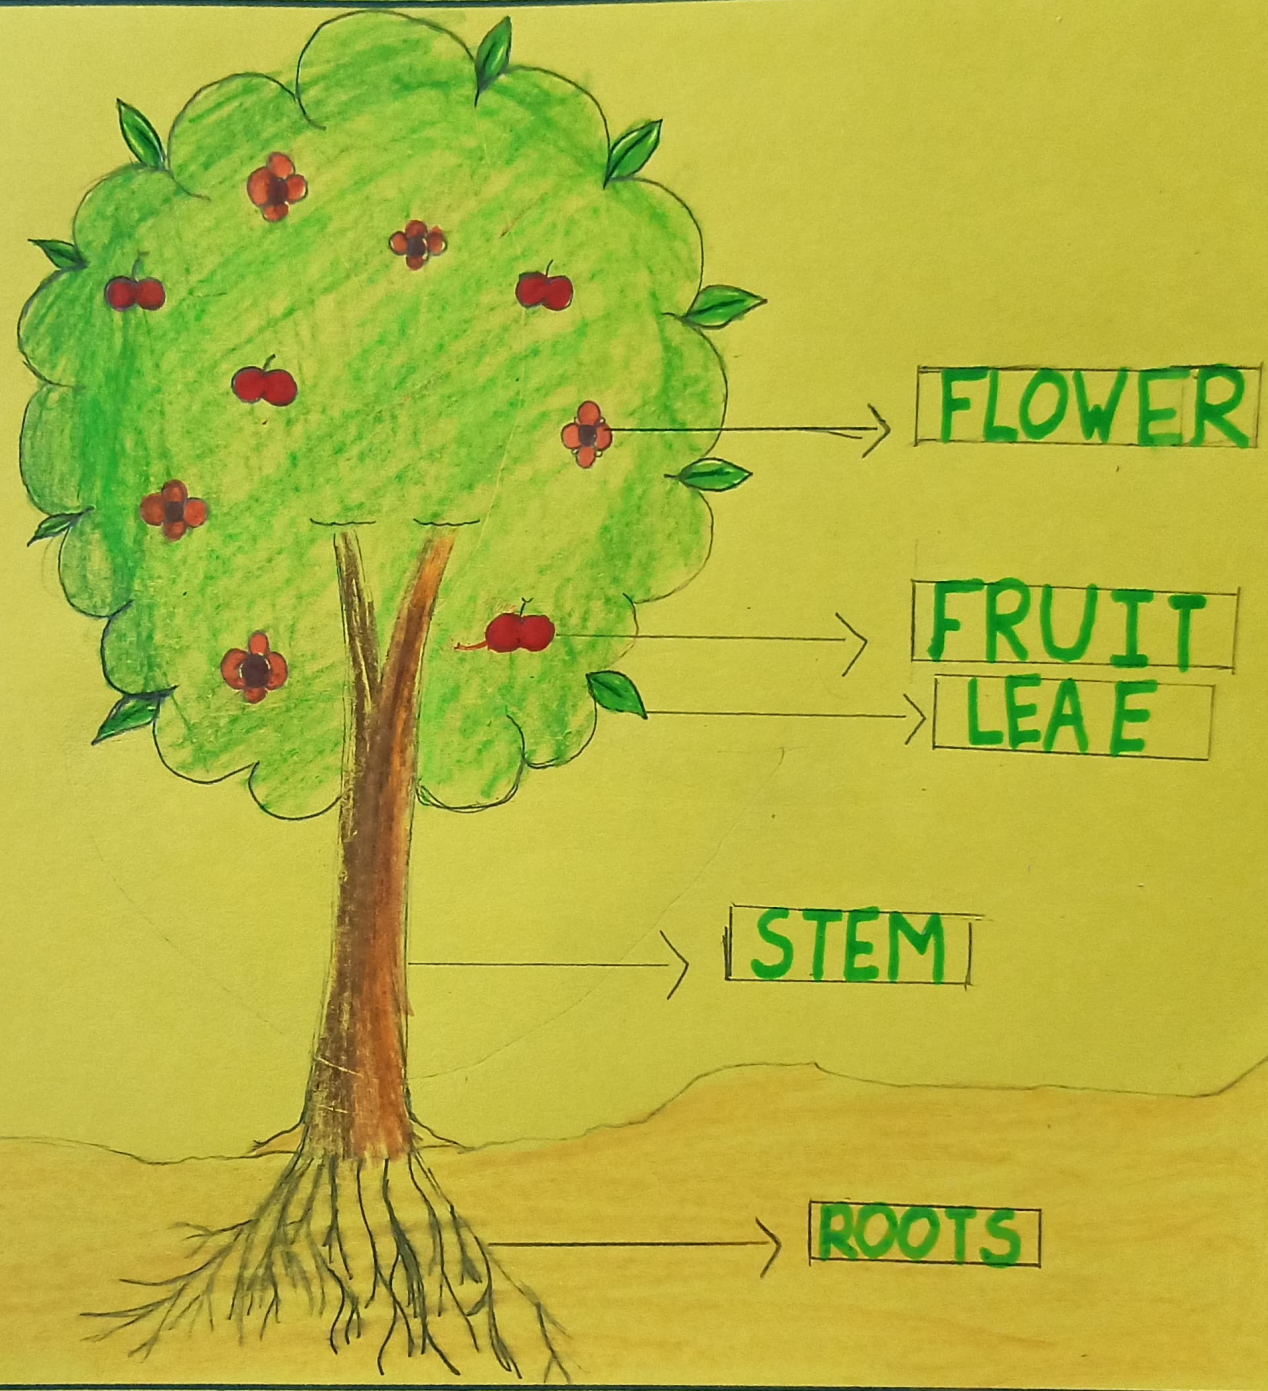 FLOWER
FRUIT
LEAE
STEM
ROOTS